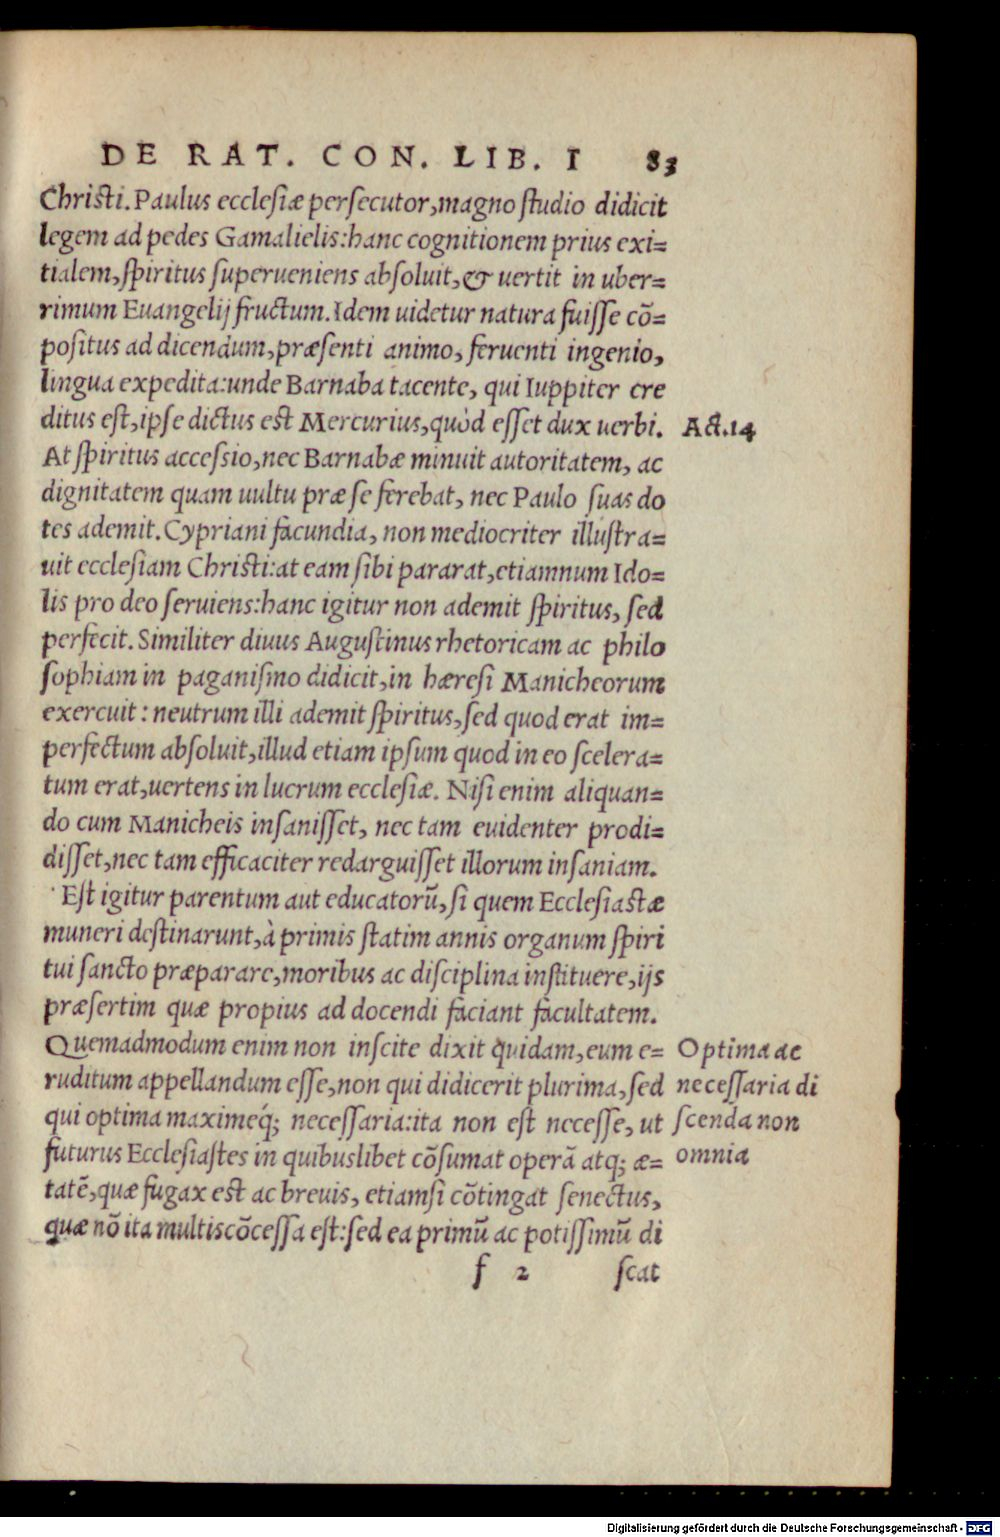 DE RAT. CON. LIB. I 83
Christi. Paulus ecclesiæ persecutor, magno studio didicit
legem ad pedes Gamalielis: hanc cognitionem prius exi=
tialem, spiritus superueniens absoluit, & uertit in uber=
rimum Euangelij fructum. Idem uidetur natura fuisse cõ=
positus ad dicendum, præsenti animo, feruenti ingenio,
lingua expedita: unde Barnaba tacente, qui Iuppiter cre
ditus est, ipse dictus est Mercurius, quòd esset dux uerbi.
Act. 14
At spiritus accessio, nec Barnabæ minuit autoritatem, ac
dignitatem quam uultu præ se ferebat, nec Paulo suas do
tes ademit. Cypriani facundia, non mediocriter illustra=
uit ecclesiam Christi: at eam sibi pararat, etiamnum Ido=
lis pro deo seruiens: hanc igitur non ademit spiritus, sed
perfecit. Similiter diuus Augustinus rhetoricam ac philo
sophiam in paganismo didicit, in hæresi Manicheorum
exercuit: neutrum illi ademit spiritus, sed quod erat im=
perfectum absoluit, illud etiam ipsum quod in eo scelera=
tum erat, uertens in lucrum ecclesiæ. Nisi enim aliquan=
do cum Manicheis insanisset, nec tam euidenter prodi=
disset, nec tam efficaciter redarguisset illorum insaniam.
Est igitur parentum aut educatorũ, si quem Ecclesiastæ
muneri destinarunt, à primis statim annis organum spiri
tui sancto præparare, moribus ac disciplina instituere, ijs
præsertim quæ propius ad docendi faciant facultatem.
Quemadmodum enim non inscite dixit quidam, eum e=
ruditum appellandum esse, non qui didicerit plurima, sed
qui optima maximeq́; necessaria: ita non est necesse, ut
futurus Ecclesiastes in quibuslibet cõsumat operã atq; æ=
tatẽ, quæ fugax est ac breuis, etiamsi cõtingat senectus,
quæ nõ ita multis cõcessa est: sed ea primũ ac potissimũ di
Optima ac
necessaria di
scenda non
omnia
f 2 scat
Digitalisierung gefördert durch die Deutsche Forschungsgemeinschaft - DFG